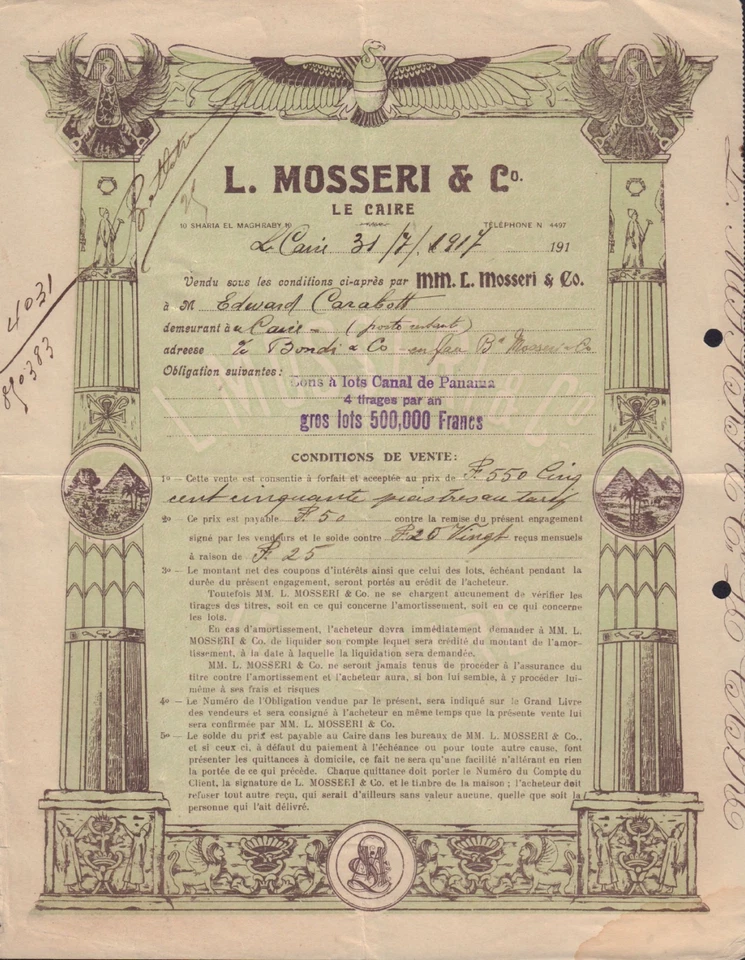 L. MOSSERI & Co.
LE CAIRE
10 SHARIA EL MAGHRABY 10 TÉLÉPHONE N 4497
Le Caire 31/7/1917 191
Vendu sous les conditions ci-après par MM. L. Mosseri & Co.
à M Edward Carabott
demeurant à Caire
adresse c/o Bondi & Co
Obligation suivantes:
Bons à lots Canal de Panama
4 tirages par an
gros lots 500,000 Francs
CONDITIONS DE VENTE:
1o — Cette vente est consentie à forfait et acceptée au prix de P. 550 Cinq
cent cinquante piastres au tarif
2o — Ce prix est payable P. 50 contre la remise du présent engagement
signé par les vendeurs et le solde contre P. 20 Vingt reçus mensuels
à raison de P. 25
3o — Le montant net des coupons d'intérêts ainsi que celui des lots, échéant pendant la
durée du présent engagement, seront portés au crédit de l'acheteur.
Toutefois MM. L. MOSSERI & Co. ne se chargent aucunement de vérifier les
tirages des titres, soit en ce qui concerne l'amortissement, soit en ce qui concerne
les lots.
En cas d'amortissement, l'acheteur devra immédiatement demander à MM. L.
MOSSERI & Co. de liquider son compte lequel sera crédité du montant de l'amor-
tissement, à la date à laquelle la liquidation sera demandée.
MM. L. MOSSERI & Co. ne seront jamais tenus de procéder à l'assurance du
titre contre l'amortissement et l'acheteur aura, si bon lui semble, à y procéder lui-
même à ses frais et risques
4o — Le Numéro de l'Obligation vendue par le présent, sera indiqué sur le Grand Livre
des vendeurs et sera consigné à l'acheteur en même temps que la présente vente lui
sera confirmée par MM. L. MOSSERI & Co.
5o — Le solde du prix est payable au Caire dans les bureaux de MM. L. MOSSERI & Co.,
et si ceux ci, à défaut du paiement à l'échéance ou pour toute autre cause, font
présenter les quittances à domicile, ce fait ne sera qu'une facilité n'altérant en rien
la portée de ce qui précède. Chaque quittance doit porter le Numéro du Compte du
Client, la signature de L. MOSSERI & Co. et le timbre de la maison; l'acheteur doit
refuser tout autre reçu, qui serait d'ailleurs sans valeur aucune, quelle que soit la
personne qui l'ait délivré.
4031
890383